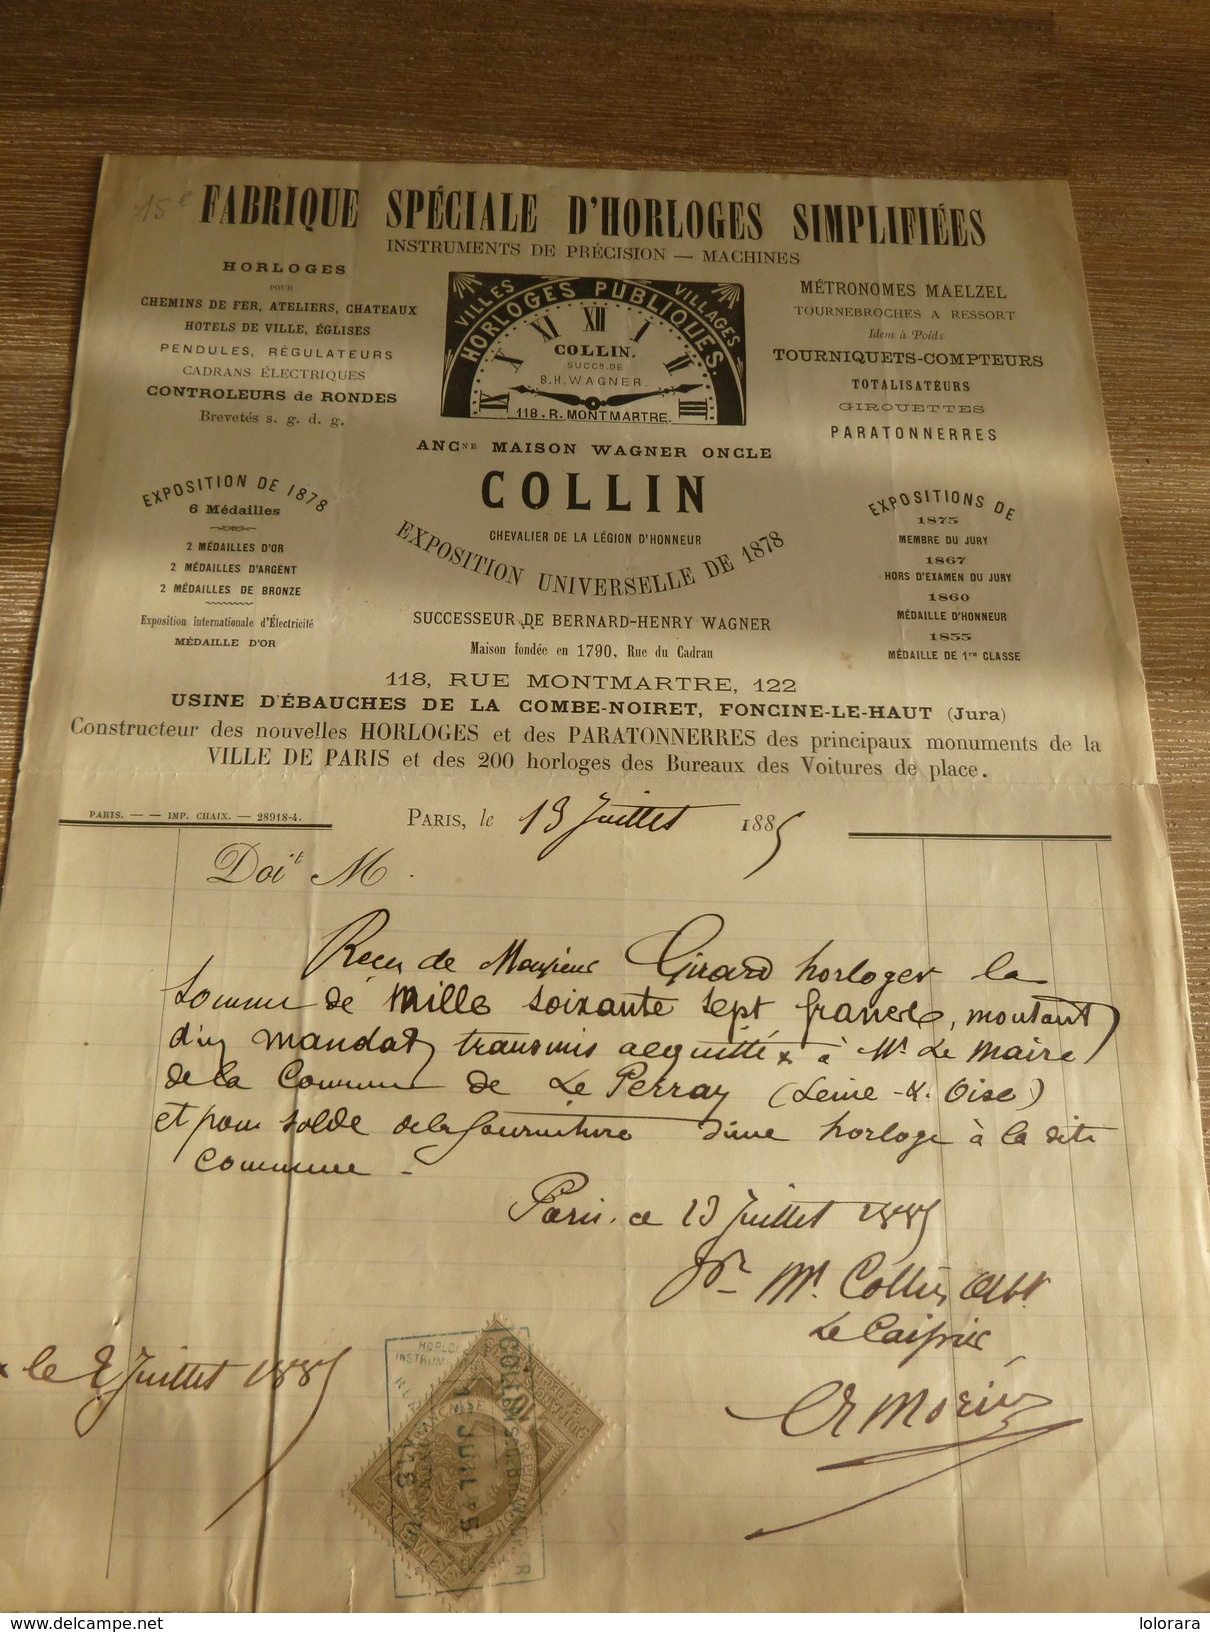 15e
FABRIQUE SPÉCIALE D'HORLOGES SIMPLIFIÉES
INSTRUMENTS DE PRÉCISION — MACHINES
HORLOGES
POUR
CHEMINS DE FER, ATELIERS, CHATEAUX
HOTELS DE VILLE, ÉGLISES
PENDULES, RÉGULATEURS
CADRANS ÉLECTRIQUES
CONTROLEURS de RONDES
Brevetés s. g. d. g.
VILLES VILLAGES
HORLOGES PUBLIQUES.
IX X XI XII I II III
COLLIN.
SUCCR. DE
B.H. WAGNER.
118. R. MONTMARTRE.
MÉTRONOMES MAELZEL
TOURNEBROCHES A RESSORT
Idem à Poids
TOURNIQUETS-COMPTEURS
TOTALISATEURS
GIROUETTES
PARATONNERRES
ANCNE MAISON WAGNER ONCLE
COLLIN
CHEVALIER DE LA LÉGION D'HONNEUR
EXPOSITION UNIVERSELLE DE 1878
SUCCESSEUR DE BERNARD-HENRY WAGNER
Maison fondée en 1790, Rue du Cadran
EXPOSITION DE 1878
6 Médailles
2 MÉDAILLES D'OR
2 MÉDAILLES D'ARGENT
2 MÉDAILLES DE BRONZE
Exposition internationale d'Électricité
MÉDAILLE D'OR
EXPOSITIONS DE
1875
MEMBRE DU JURY
1867
HORS D'EXAMEN DU JURY
1860
MÉDAILLE D'HONNEUR
1855
MÉDAILLE DE 1re CLASSE
118, RUE MONTMARTRE, 122
USINE D'ÉBAUCHES DE LA COMBE-NOIRET, FONCINE-LE-HAUT (Jura)
Constructeur des nouvelles HORLOGES et des PARATONNERRES des principaux monuments de la
VILLE DE PARIS et des 200 horloges des Bureaux des Voitures de place.
PARIS. — — IMP. CHAIX. — 28918-4.
PARIS, le 13 Juillet 1885
Doit M.
Reçu de Monsieur Girard horloger la
somme de Mille soixante sept francs, montant
d'un mandat transmis acquitté x à Mr Le Maire
de la Commune de Le Perray (Seine-&-Oise)
et pour solde de la fourniture d'une horloge à la dite
commune.
Paris, ce 13 Juillet 1885
Pr Mr. Collin Abt
Le Caissier
x le 8 Juillet 1885
10 C.
RÉPUBLIQUE FRANÇAISE
QUITTANCES
COLLIN
13 JUIL 85
118
lolorara